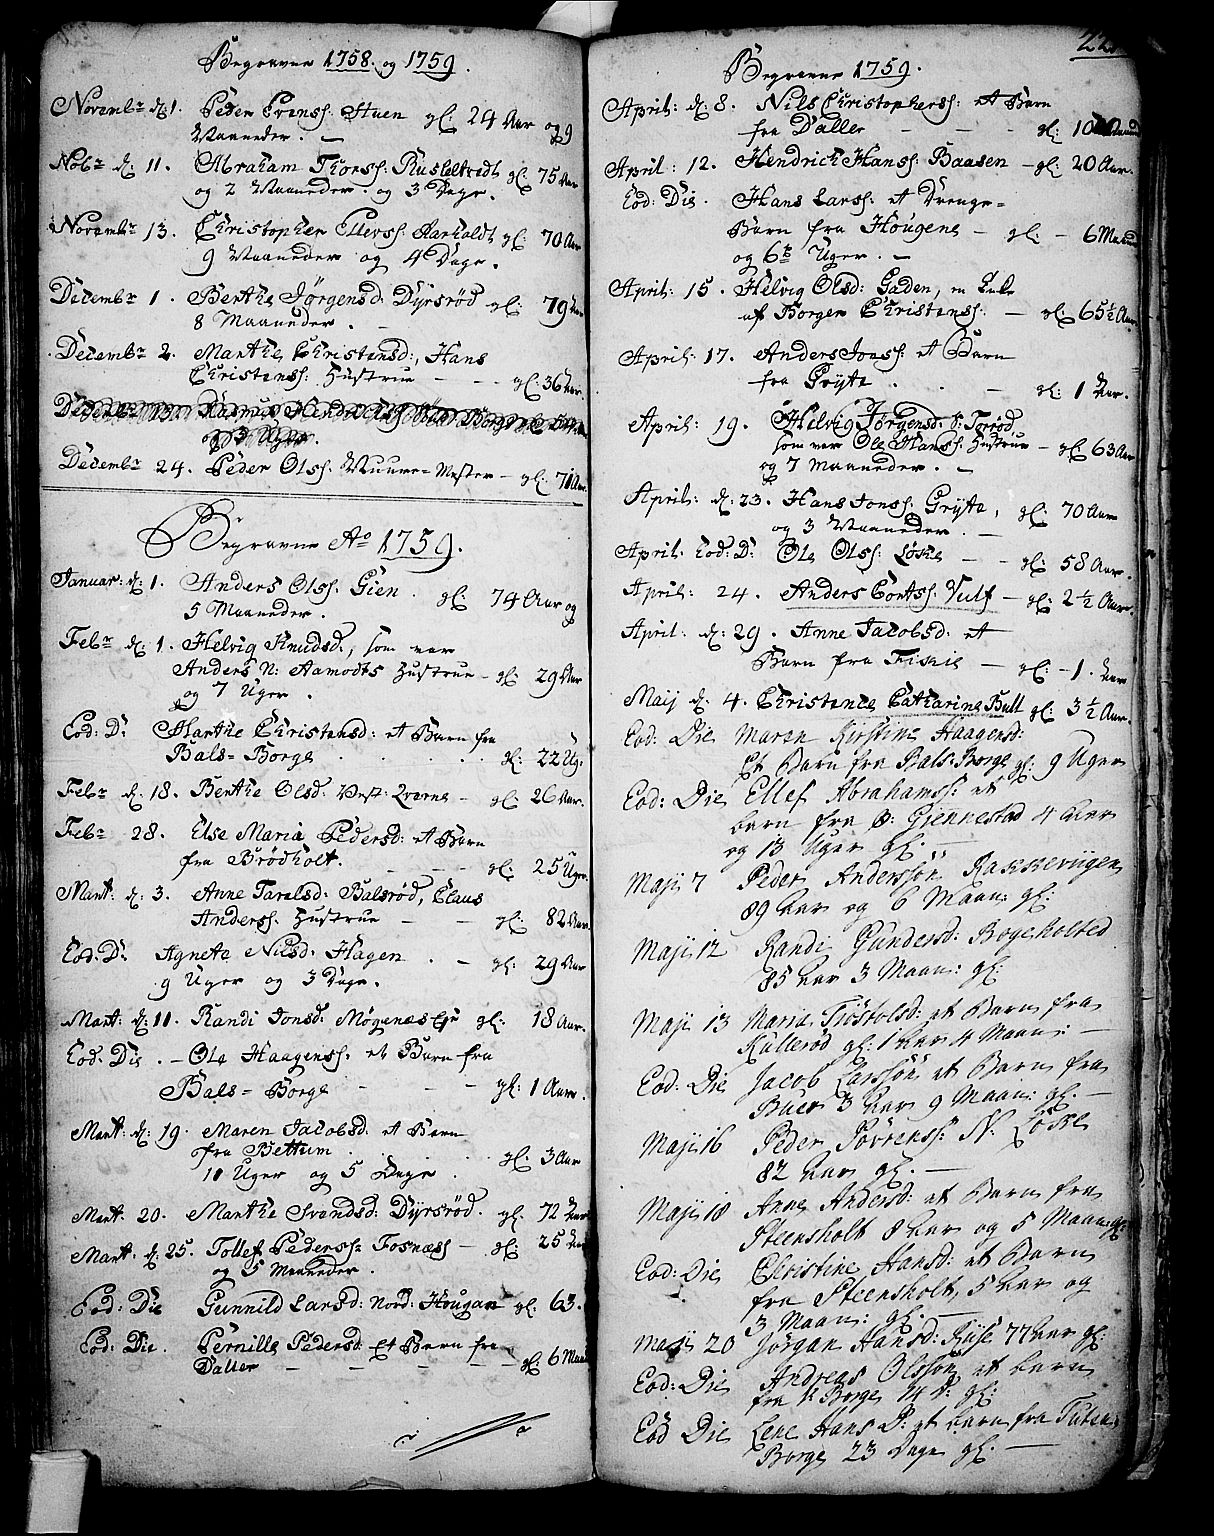 Begravne 1758. og 1759.
Novembr d. 1. Peder Evenss. Huen gl: 24 Aar og 9
Maaneder.
Nobr d: 11. Abraham Thorss: gl: 75 Aar
og 2 Maaneder. og 3 Dage.
Novembr 13. Christopher Ellevss: Aarholdt gl: 70 Aar
9 Maaneder og 4 Dage.
Decembr 1. Berthe Jørgensd: Dyrsrød gl: 79 Aar
8 Maaneder.
Decembr 2. Marthe Christensd:, Hans
Christenss: Hustrue - - - gl: 36 Aar.
Decembr 13. Rasmus
og 3 Uger.
Decembr 24. Peder Olss: Muure-Mester - gl: 71 Aar.
Begravne Ao 1759.
Januar: d: 1. Anders Olss: Gien. gl: 74 Aar og
5 Maaneder.
Febr d: 1. Helvig Knudsd:, som var
Anders N: Aamodts Hustrue - gl: 29 Aar
og 7 Uger.
Eod: D: Marthe Christensd: et Barn fra
Bals-Borge gl: 22 Ug:
Febr d: 18. Berthe Olsd: Vest: Qverne - gl: 26 Aar.
Febr 28. Else Maria Pedersd: et Barn
fra Brødholt. - - - gl: 25 Uger.
Mart: d: 3. Anne Tarelsd: Balsrød, Claus
Anderss: Hustrue - - gl: 82 Aar.
Eod: D: Agnete Nilsd: Hagen. - gl: 29 Aar
9 Uger og 3 Dage.
Mart: d: 11. Randi Jonsd: Møgenæs gl: 18 Aar.
Eod: Die. - Ole Haagenss: et Barn fra
Bals-Borge - - - gl: 1 Aar.
Mart: d: 19. Maren Jacobsd: et Barn
fra Bettum. gl: 3 Aar
11 Uger og 5 Dage.
Mart: 20. Marthe Svendsd: Dyrsrød. gl: 72 Aar
Mart: d: 25. Tollef Pederss: Fosnæss - gl: 25 Aar
og 5 Maaneder.
Eod: Die Gunnild Larsd: Nord: Hougan gl: 63.
Eod: Die. Pernille Pedersd: Et Barn fra
Daller - - - - - gl: 6 Maan
Begravne 1759.
April: d: 8. Nils Christopherss: et Barn
fra Daller - - - gl: 10
April: 12. Hendrich Hanss: Baasen - gl: 20 Aar.
Eod: Die. Hans Larss: et Drenge-
Barn fra Hougene - gl: - 6 Maan
og 6 Uger. -
April: 15. Helvig Olsd: Gaden,
af Borger Christenss: - gl: 65½ Aar
April: 17. Anders Jonss: et Barn
fra Gryte. - gl: 1 Aar.
April: 19. Helvig Jørgensd: S: Torød
som var Ole Hanss: Hustrue - gl: 63 Aar
og 7 Maaneder. -
April: d: 23. Hans Jonss: Gryte, gl: 70 Aar
og 3 Maaneder. -
April: Eod: D: Ole Olss: Løke - - gl: 58 Aar.
April: 24. Anders Cortss: Vulf - gl: 2½ Aar.
April: d: 29. Anne Jacobsd: et
Barn fra - gl: - 1 Aar
Maij d: 4. Christence Catharine Bull gl: 3½ Aar.
Eod: Die Maren Kirstine Haagensd:
Et Barn fra Bals-Borge gl: 9 Uger
Eod: Die Ellef Abrahamss: et
barn fra Ø: Gjennestad 4 Aar
og 13 Uger gl: -
Maji 7 Peder Anderssøn Rakkeviigen
89 Aar og 6 Maan: gl:
Maji 12 Randi Gundersd: Bogeholted
85 Aar 3 Maan: gl:
Maji 13 Maria Trostolsd: et Barn fra
Kullerød gl: 1 Aar 4 Maan: -
Eod: Die Jacob Larssøn et Barn fra
Buer 3 Aar 9 Maan: gl: -
Maji 16 Peder Sørrenss: N: Løke
82 Aar gl: -
Maji 18 Anne Andersd: et Barn fra
Steensholt 8 Aar og 5 Maan: gl:
Eod: Die Christine Hansd: et Barn
fra Steensholt, 5 Aar og
3 Maan: gl: -
Maji 20 Jørgan Hansd: Riise 77 Aar gl:
Eod: Die Andreas Olssøn et barn
fra N: Borge 14 D: gl:
Eod Die Lene Hans D: et barn fra
Borge 23 Dage gl: -